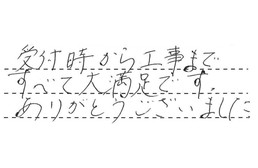 受付時から工事まで
すべて大満足です。
ありがとうございました